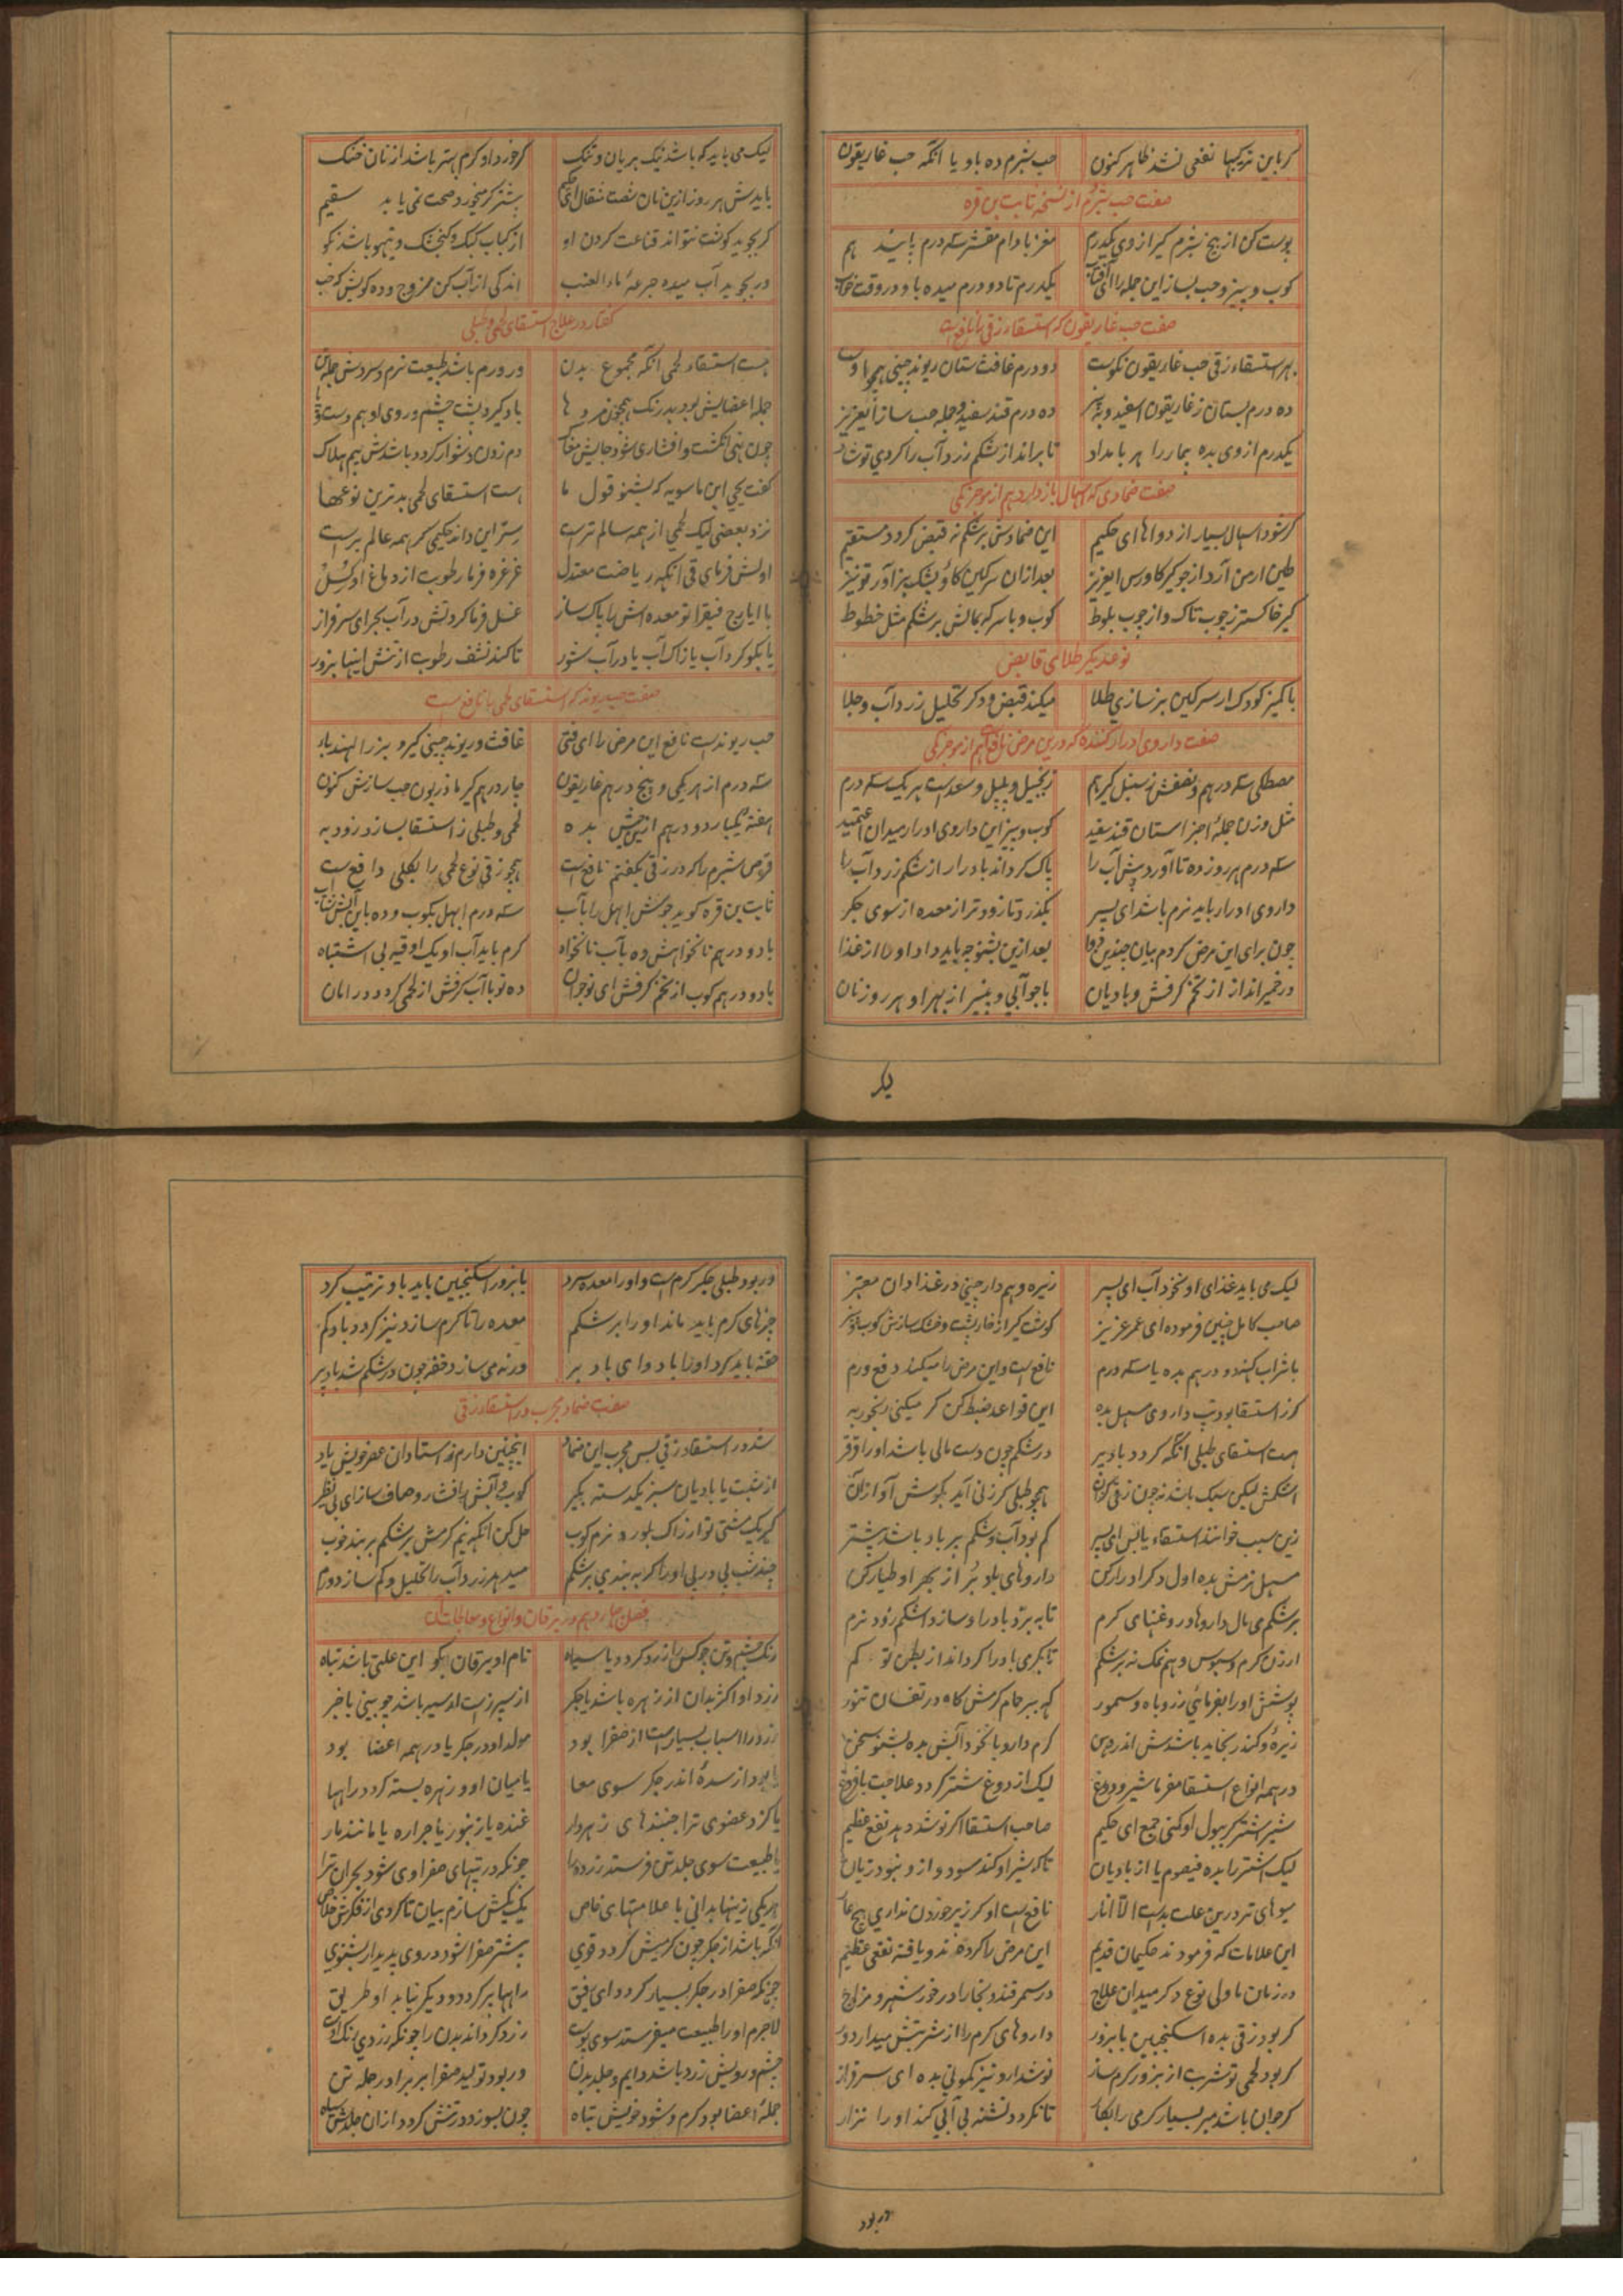 کر باین ترکیبها نفعی نشد ظاهر کنون حب شبرم ده باو یا آنکه حب غاریقون
صفت حب شبرم از نسخه ثابت بن قره
پوست کن از بیخ شبرم کیر از وی یکدرم مغز بادام مقشر سه درم باید هم
کوب و بیز و حب بساز این جمله را ای یکدرم تا دو درم میده باو در وقت خواب
صفت حب غاریقون که استسقاء زقی را نافع است
بهر استسقاء زقی حب غاریقون نکوست دو درم غافث ستان ریوند چینی همچو اوست
ده درم بستان ز غاریقون اسفید و به بیز ده درم قند سفید و جمله حب ساز ای عزیز
یکدرم از وی بده بیمار را هر بامداد تا براند از شکم زرد آب را کردی تو شاد
صفت ضمادی که اسهال باز دارد هم از موجزکی
کر شود اسهال بسیار از دواها ای حکیم این ضمادش بر شکم نه قبض کردد مستقیم
طین ارمن آرد از جو کیر کاورس ای عزیز بعد از آن سرکین کاو و پشک بز آور تو نیز
کیر خاکستر ز چوب تاک و از چوب بلوط کوب و با سرکه بمالش بر شکم مثل خطوط
نوعدیکر طلای قابض
با کمیز کودک ار سرکین بز سازی طلا میکند قبض و دکر تحلیل زرد آب و جلا
صفت داروی ادرار کننده که درین مرض نافع است هم از موجزکی
مصطکی سه درهم و نصفش ز سنبل کیر هم زنجبیل و پلپل و سعد است هر یک سه درم
مثل وزن جمله اجزا ستان قند سفید کوب و بیز این داروی ادرار میدان
سه درم هر روز ده تا آوردش آب را پاک کرداند بادرار از شکم زرد آب را
داروی ادرار باید نرم باشد ای پسر بکذرد تا زودتر از معده از سوی جکر
چون برای این مرض کردم بیان چندین دوا بعد ازین بشنو چه باید داد او را از غذا
در خمیر انداز از تخم کرفش و بادیان با جوآبی و بپز از بهر او هر روز نان
یک
لیک می باید که باشد نیک بریان و تنک کر خورد او کرم بهتر باشد از نان خنک
بایدش هر روز ازین نان شصت مثقال ای حکیم بیشتر کر میخورد صحت نمی یابد سقیم
کر بجوید کوشت نتواند قناعت کردن او از کباب کبک و کنجشک و تیهو باشد نکو
در بجوید آب میده جرعه ماء العنب اندکی از آب کن ممزوج و ده
کفتار در علاج استسقای لحمی و طبلی
هست استسقاء لحمی آنکه مجموع بدن ور ورم باشد طبیعت نرم و سردش
جمله اعضایش بود بیرنک همچون مرده ها باد کیرد پشت چشم و روی او هم دست و پا
چون نهی انکشت و افشاری شود جایش مغاک دم زدن دشوار کردد باشدش بیم هلاک
کفت یحیی ابن ماسویه که بشنو قول ما هست استسقای لحمی بدترین نوعها
نزد بعضی لیک لحمی از همه سالم تر است سر این داند حکیمی کز همه عالم بر است
اولش فرمای قی آنکه ریاضت معتدل غرغره فرما رطوب از دماغ او کسل
با ایارج فیقرا تو معده اش را پاک ساز غسل فرما کردنش در آب بحر ای سرفراز
یا بکوکرد آب یا زاک آب یا در آب شور تا کند نشف رطوب از تنش اینها بزور
صفت حب ریوند که استسقای لحمی را نافع است
حب ریوند است نافع این مرض را ای فتی غافث و ریوند چینی کیر و بزر الهندبا
سه درم از هر یکی و پنج درهم غاریقون چار درهم کیر ماذریون حب سازش کنون
هفته یکبار دو درهم بده لحمی و طبلی ز استسقا بسازد زود به
قرص شبرم را که در زقی بکفتم نافع است همچو زقی نوع لحمی را بکلی دافع است
ثابت بن قره کوید جوش ابهل را بآب سه درم ابهل بکوب و ده باین
یا دو درهم نانخواهش ده بآب نانخواه کرم باید آب او یک اوقیه بی اشتباه
یا دو درهم کوب از تخم کرفش ای نوجوان ده تو با آب کرفش از لحمی کردد در امان
لیک می باید غذای او نخود آب ای پسر زیره و هم دارچینی در غذا دان معتبر
صاحب کامل چنین فرموده ای عمر عزیز کوشت کیر از خارپشت و خشک سازش کوب و بیز
با شراب کهنه دو درهم بده یا سه درم نافع است و این مرض را میکند دفع ورم
کر ز استسقا بود تب داروی مسهل بده این قواعد ضبط کن کر میکنی رنجور به
هست استسقای طبلی آنکه کردد باد پر در شکم چون دست مالی باشد او را
اشکمش لیکن سبک باشد نه چون زقی کران همچو طبلی کر زنی آید بکوش آواز آن
زین سبب خوانند استسقاء یابس ای پسر کم بود آب و شکم پر باد باشد بیشتر
مسهل نرمش بده اول دکر ادرار کن داروهای بلد بر از بهر او طیار کن
بر شکم می مال داروها و روغنهای کرم تا ببرد باد را و سازد اشکم زود نرم
ارزن کرم و سبوس و هم نمک نه بر شکم تا بکرمی باد را کرداند از بطن تو کم
پوشش او را بفرمائی ز روباه و سمور که ببر حمام کرمش کاه در تفسان تنور
زیره و کندر بخاید باشدش اندر دهن کرم دارو با نخود آبش بده بشنو سخن
در همه انواع استسقا مفرما شیر و دوغ لیک از دوغ شتر کردد علاجت با فروغ
شیر اشتر کر ببول او کنی جمع ای حکیم صاحب استسقا اکر نوشد دهد نفع عظیم
لیک اشتر را بده قیصوم یا از بادیان تا که شیر او کند سود و از و نبود زیان
میوهای تر درین علت بد است الا انار نافع است او کر ز پر خوردن نداری هیچ عار
این علامات که فرمودند حکیمان قدیم این مرض را کرده اند و یافته نفعی عظیم
در زمان ما ولی نوع دکر میدان علاج در سمرقند و بخارا در خور شهر و مزاج
کر بود زقی بده اسکنجبین با بزور داروهای کرم را از شربتش میدار دور
کر بود لحمی تو شربت از بزور کرم ساز نوشدارو نیز کمونی بده ای سرفراز
کر جوان باشد مبر بسیار کرمی را بکار تا نکردد تشنه بی آبی کند او را نزار
ور بود
ور بود طبلی جکر کرم است و او را معده سرد با بزور اسکنجبین باید باو ترتیب کرد
چیزهای کرم باید ماند او را بر شکم معده را تا کرم سازد نیز کردد باد کم
حقنه باید کرد او را با دوای باد بر ورنه می سازد خفه چون در شکم شد باد پر
صفت ضماد مجرب در استسقاء زقی
شد در استسقاء زقی بس مجرب این ضماد اینچنین دارم ز استادان عصر خویش یاد
از شبت یا بادیان سبز یکدسته بکیر کوب و آبش را فشار و صاف ساز ای بی نظیر
کیر یک مشتی تو از زاک بلور و نرم کوب حل کن آنکه نیم کرمش بر شکم بر بند خوب
چند شب پی در پی او را کر ببندی بر شکم میبرد زرد آب را تحلیل و کم سازد ورم
فصل چهاردهم در یرقان و انواع و معالجات آن
رنک چشم و تن چو کس را زرد کردد یا سیاه نام او یرقان بکو این علتی باشد تباه
زرد او اکثر بدان از زهره باشد یا جکر از سپرزست او سیه باشد چو بینی با خبر
زرد را اسباب بسیار است از صفرا بود مولد او در جکر یا در همه اعضا بود
یا بود از سده اندر جکر سوی معا یا میان او و زهره بسته کردد راهها
یا کزد عضوی ترا جنبندهای زهردار غنده یا زنبور یا جراره یا مانند مار
یا طبیعت سوی جلدش فرستد زرده را چونکه در تپهای صفراوی شود بحران ترا
هر یکی زینها بدانی با علامتهای خاص یک بیکش سازم بیان تا کردی از فکرش خلاص
آنکه باشد از جکر چون کرمیش کردد قوی بیشتر صفرا شود در وی پدیدار بشنوی
چونکه صفرا در جکر بسیار کردد ای رفیق راهها پر کردد و دیکر نیابد او طریق
لاجرم او را طبیعت میفرستد سوی پوست زرد کرداند بدن را چونکه زردی رنک اوست
چشم و رویش زرد باشد دایم و جلد بدن ور بود تولید صفرا بر برادر جمله تن
جمله اعضا بود کرم و شود خویش تباه چون بسوزد در تنش کردد از آن جلدش سیاه